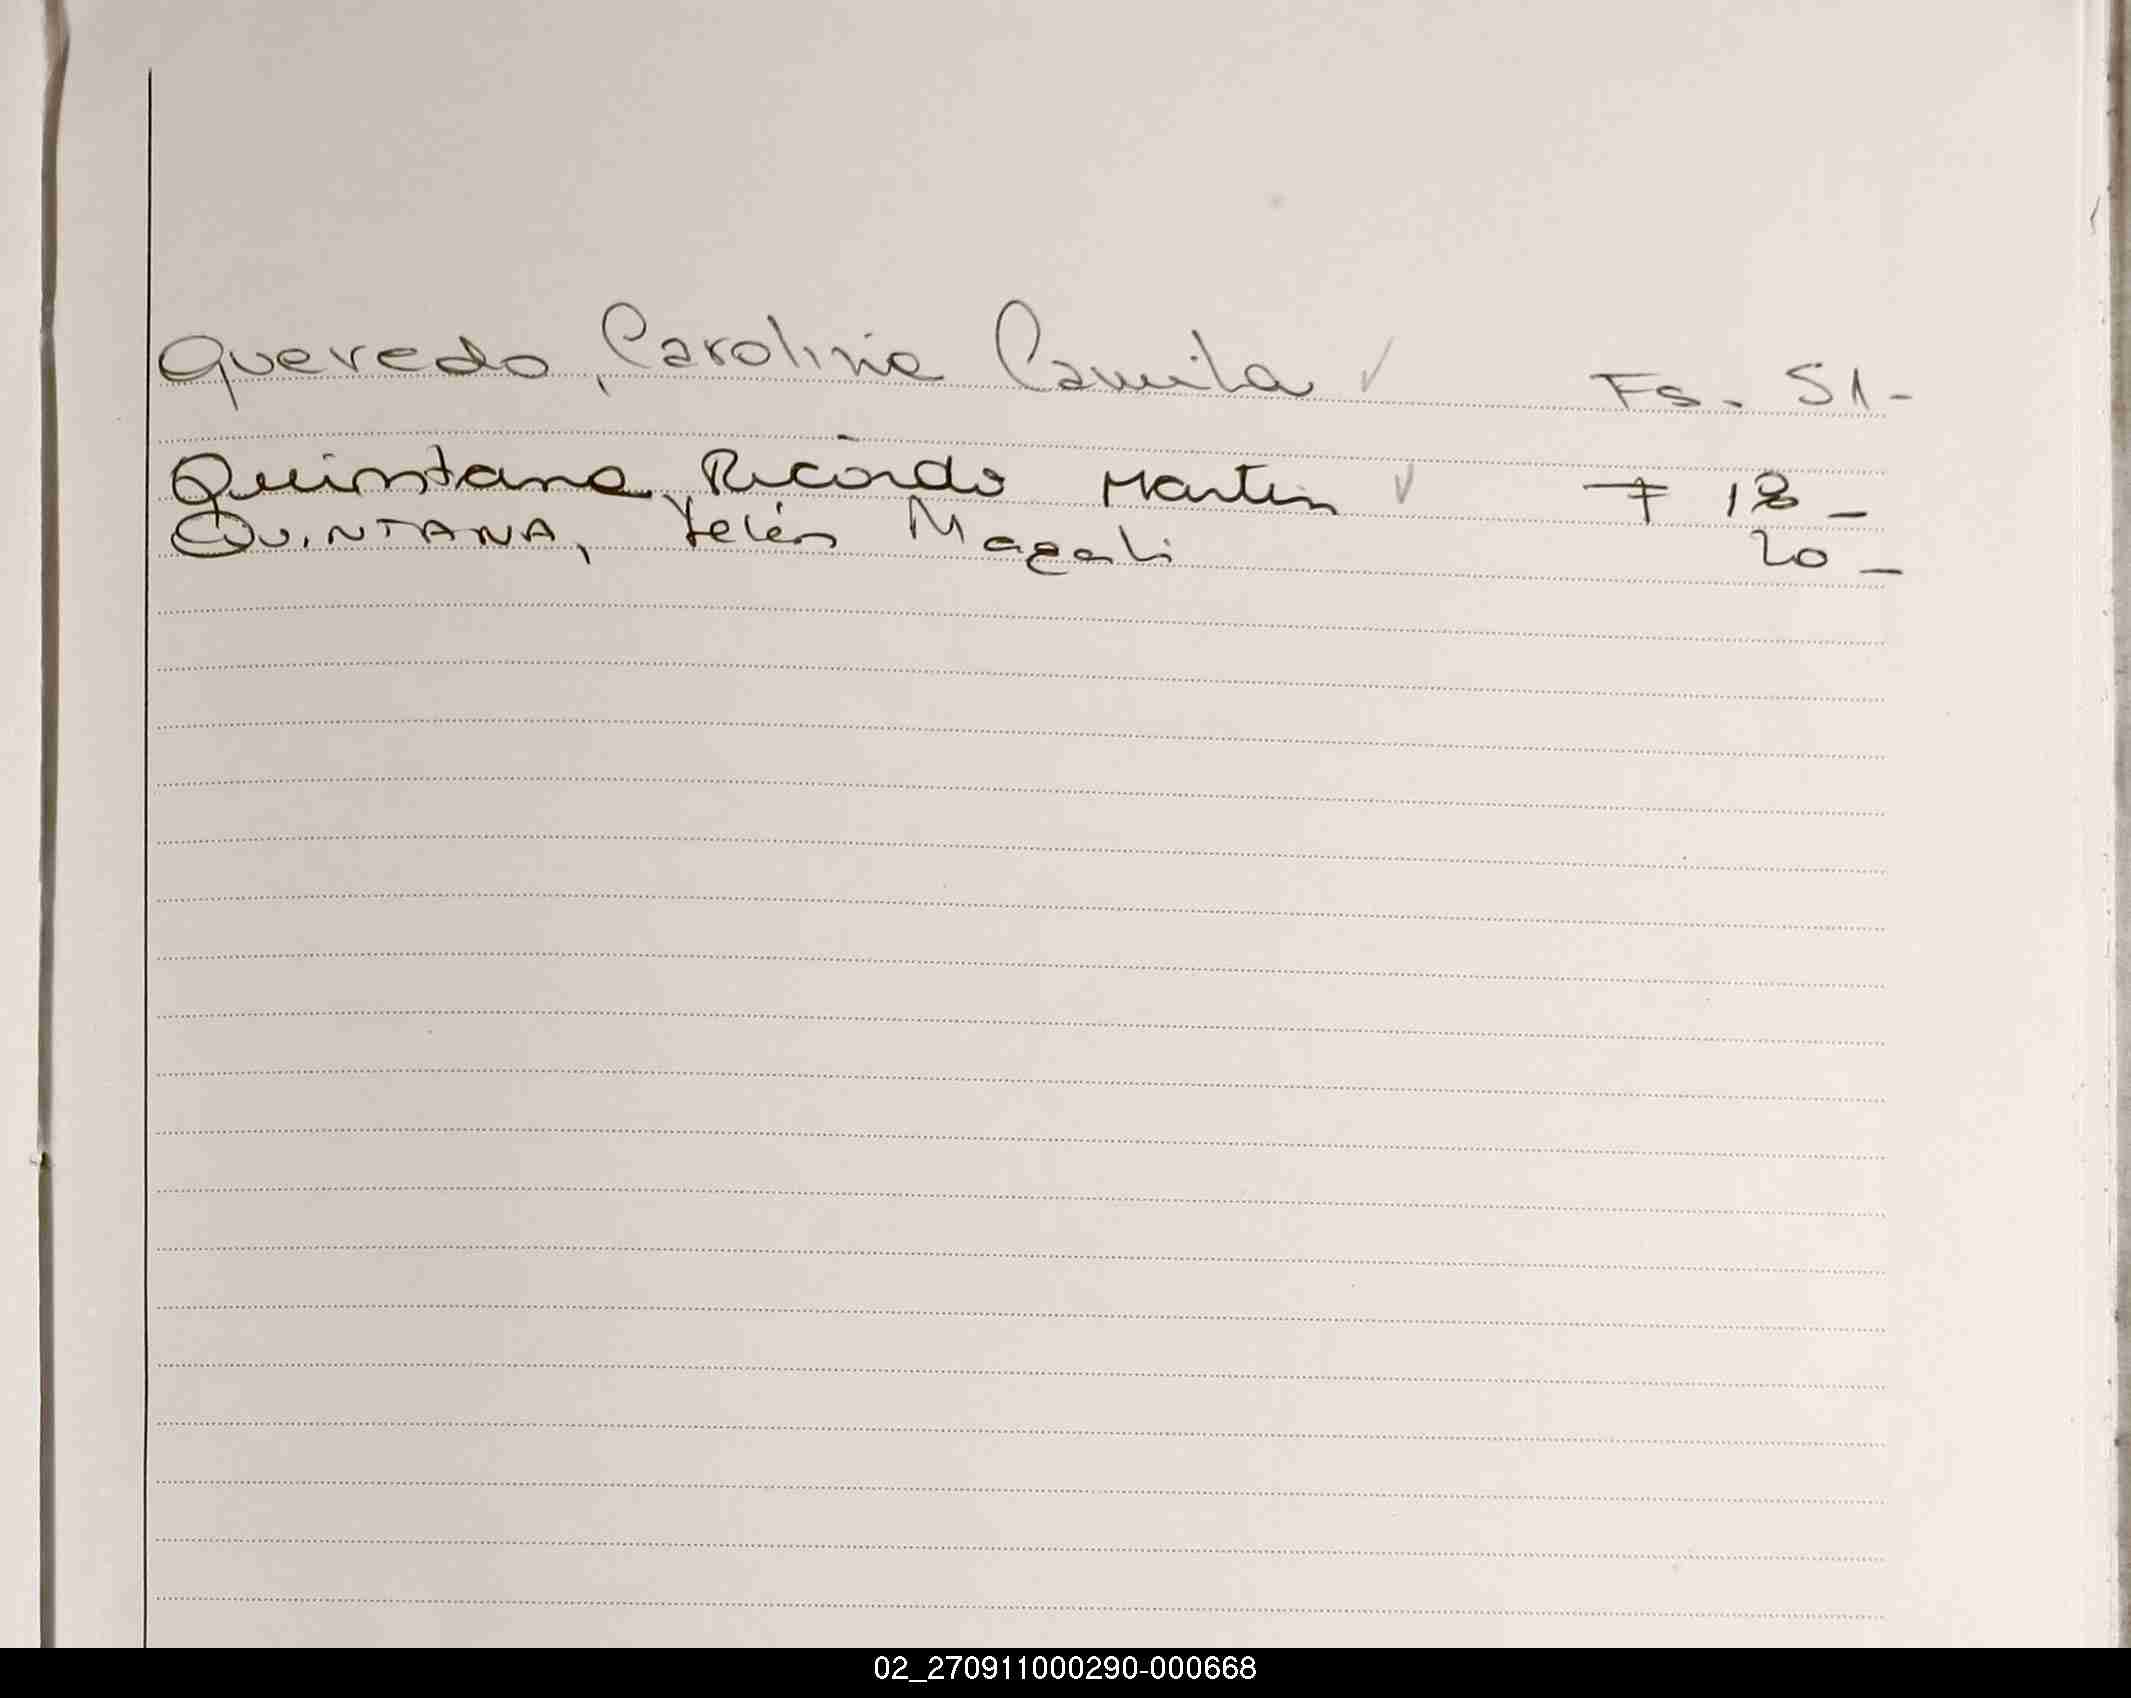 Quevedo, Carolina Camila ✓ Fs. 51-
Quintana, Ricardo Martin ✓ F 18-
QUINTANA, Yelén Magali 20-
02_270911000290-000668